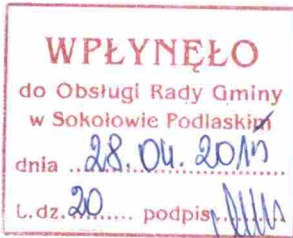 WPŁYNĘŁO
do Obsługi Rady Gminy
w Sokołowie Podlaskim
dnia 28.04.2015
L.dz. 20 podpis